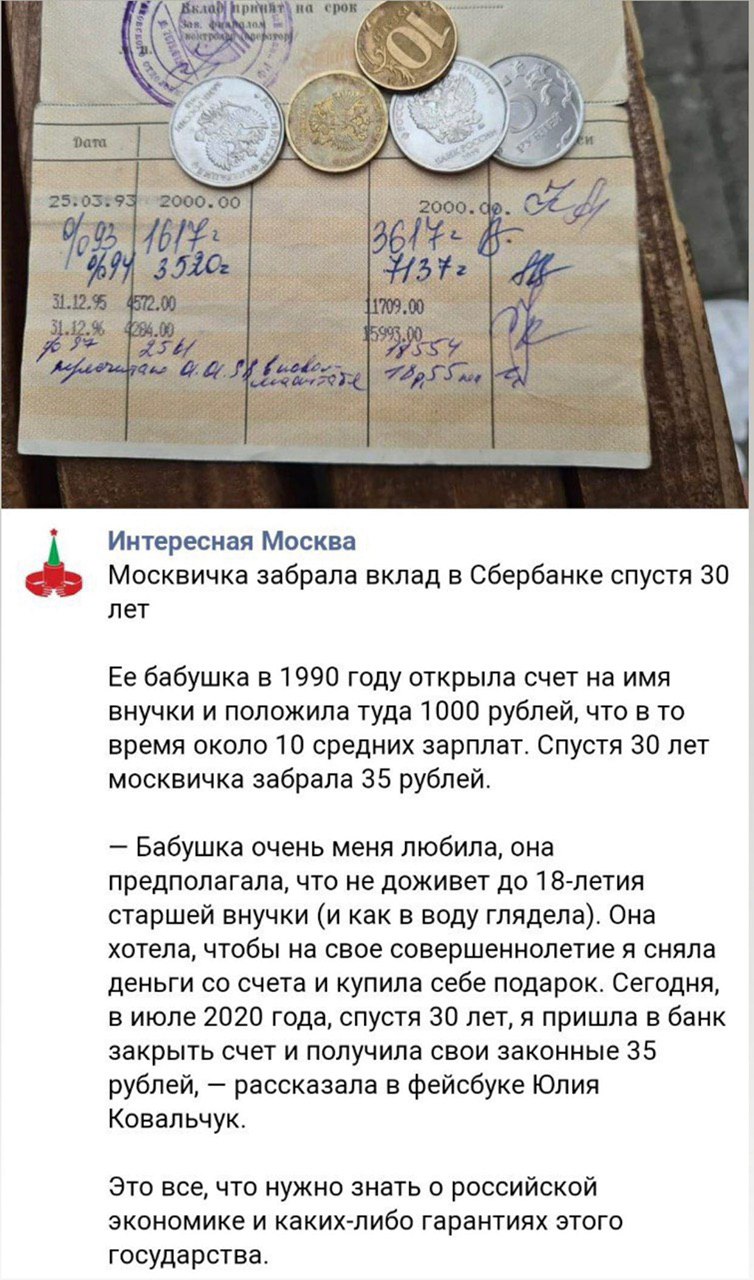 Вклад принят на срок
Зав. филиалом
(контролер, оператор)
Дата
10
РУБЛЕЙ
БАНК РОССИИ
25.03.93 2000.00 2000.00.
%93 1617= 3617=
%94 3520= 7137=
31.12.95 4572.00 11709.00
31.12.96 4284.00 15993.00
% 97 2561 18554
пересчитано 01.01.98 в новом
масштабе 18р55
Интересная Москва
Москвичка забрала вклад в Сбербанке спустя 30
лет
Ее бабушка в 1990 году открыла счет на имя
внучки и положила туда 1000 рублей, что в то
время около 10 средних зарплат. Спустя 30 лет
москвичка забрала 35 рублей.
— Бабушка очень меня любила, она
предполагала, что не доживет до 18-летия
старшей внучки (и как в воду глядела). Она
хотела, чтобы на свое совершеннолетие я сняла
деньги со счета и купила себе подарок. Сегодня,
в июле 2020 года, спустя 30 лет, я пришла в банк
закрыть счет и получила свои законные 35
рублей, — рассказала в фейсбуке Юлия
Ковальчук.
Это все, что нужно знать о российской
экономике и каких-либо гарантиях этого
государства.